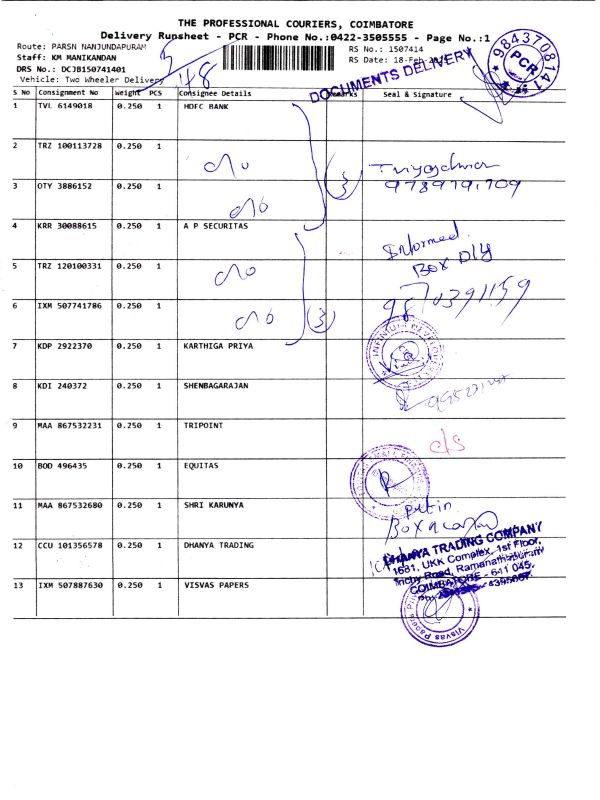 THE PROFESSIONAL COURIERS, COIMBATORE
Delivery Runsheet - PCR - Phone No.:0422-3505555 - Page No.:1
Route: PARSN NANJUNDAPURAM
RS No.: 1507414
Staff: KM MANIKANDAN
RS Date: 18-Feb
DRS No.: DCJB150741401
Vehicle: Two Wheeler Delivery
DOCUMENTS DELIVERY
9843708141
PCR
S No Consignment No Weight PCS Consignee Details Remarks Seal & Signature
1 TVL 6149018 0.250 1 HDFC BANK
2 TRZ 100113728 0.250 1
3
9789791709
3 OTY 3886152 0.250 1
4 KRR 30088615 0.250 1 A P SECURITAS
Informed
Box Dly
5 TRZ 120100331 0.250 1
9870391159
6 IXM 507741786 0.250 1
3
7 KDP 2922370 0.250 1 KARTHIGA PRIYA
8 KDI 240372 0.250 1 SHENBAGARAJAN
9 MAA 867532231 0.250 1 TRIPOINT
c/s
10 BOD 496435 0.250 1 EQUITAS
11 MAA 867532680 0.250 1 SHRI KARUNYA
put in
Box
12 CCU 101356578 0.250 1 DHANYA TRADING
DHANYA TRADING COMPANY
1681, UKK Complex, 1st Floor,
Trichy Road, Ramanathapuram
COIMBATORE - 641 045.
13 IXM 507887630 0.250 1 VISVAS PAPERS
Visvas Papers